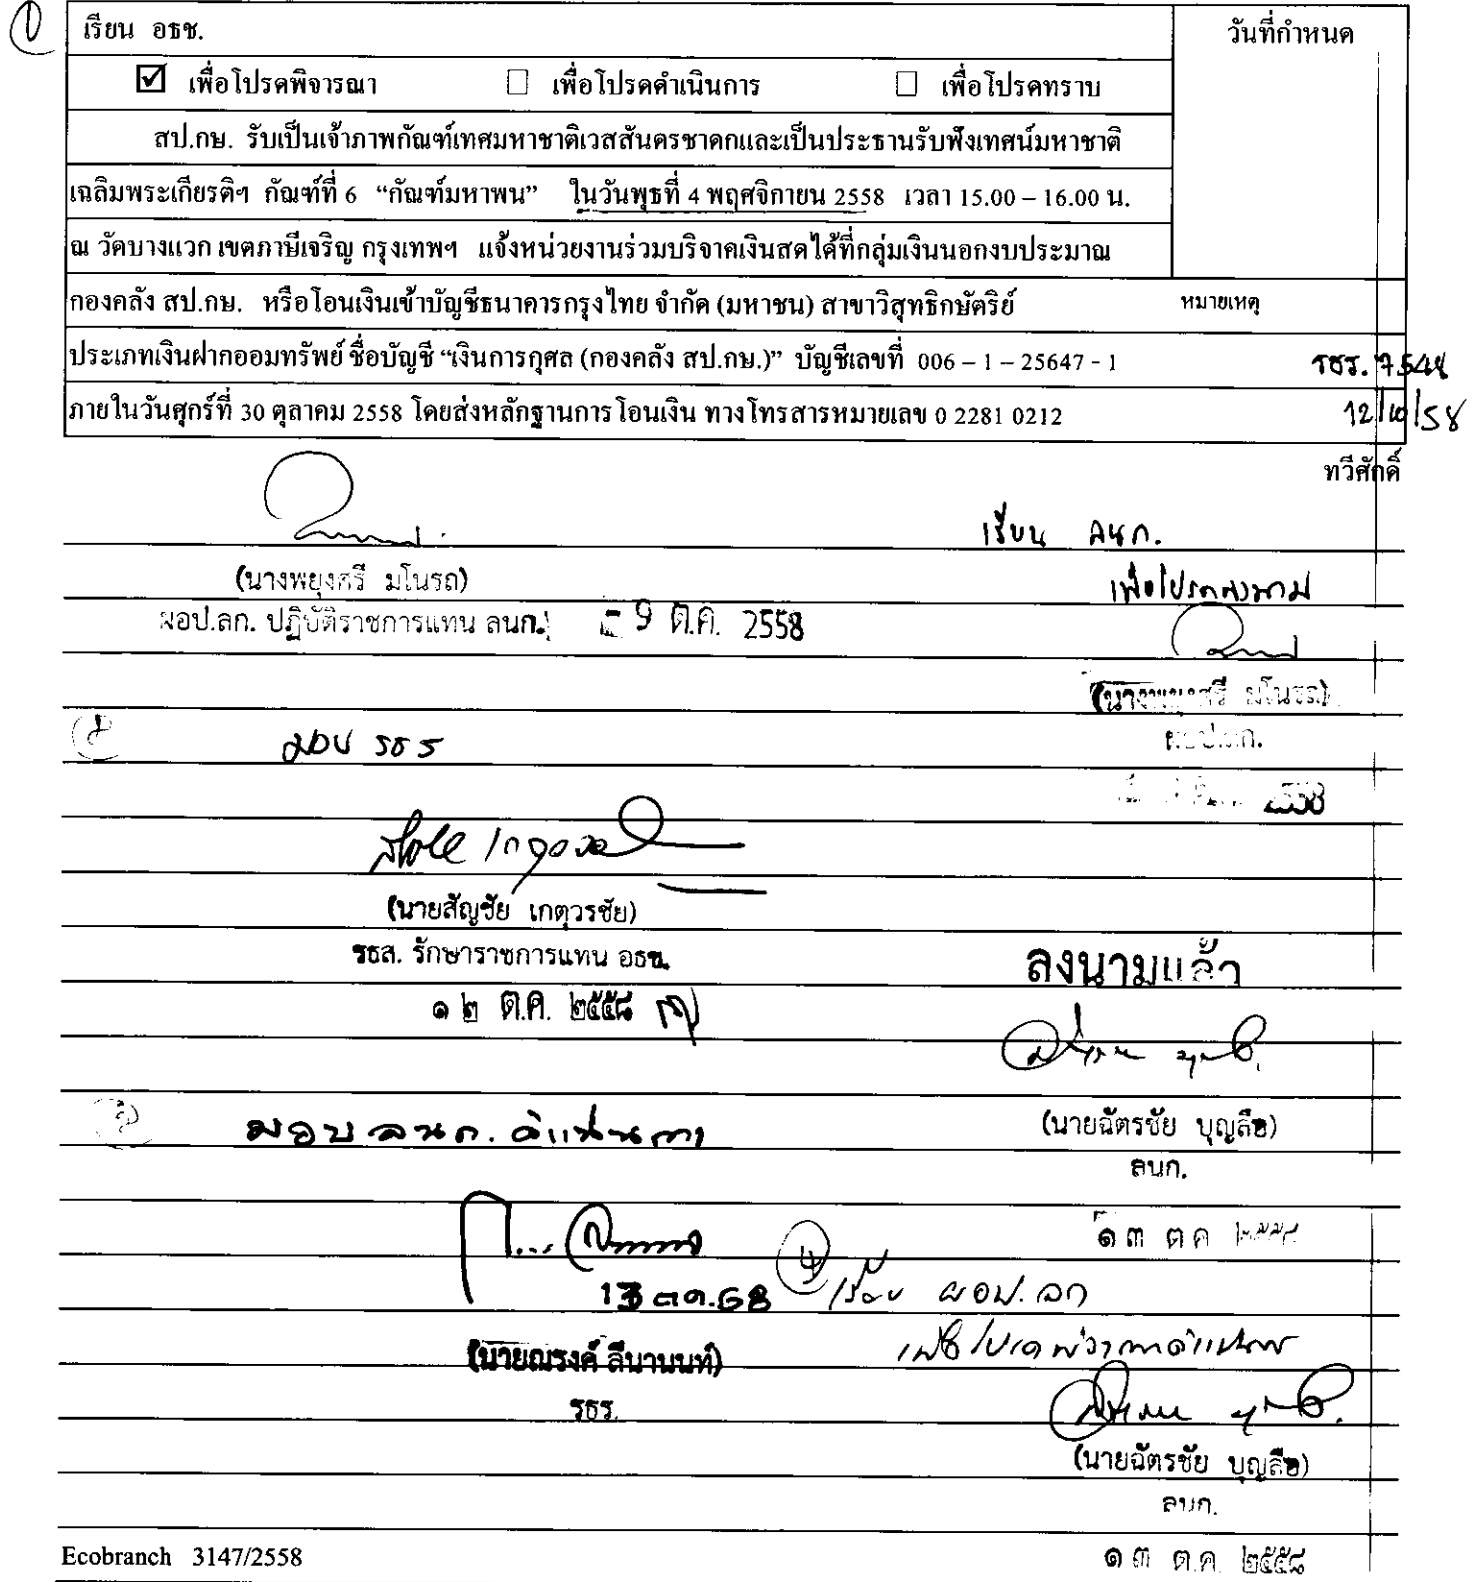 เรียน อธช.
วันที่กำหนด
☑ เพื่อโปรดพิจารณา ☐ เพื่อโปรดดำเนินการ ☐ เพื่อโปรดทราบ
สป.กษ. รับเป็นเจ้าภาพกัณฑ์เทศมหาชาติเวสสันดรชาดกและเป็นประธานรับฟังเทศน์มหาชาติ
เฉลิมพระเกียรติฯ กัณฑ์ที่ 6 “กัณฑ์มหาพน” ในวันพุธที่ 4 พฤศจิกายน 2558 เวลา 15.00 – 16.00 น.
ณ วัดบางแวก เขตภาษีเจริญ กรุงเทพฯ แจ้งหน่วยงานร่วมบริจาคเงินสดได้ที่กลุ่มเงินนอกงบประมาณ
กองคลัง สป.กษ. หรือโอนเงินเข้าบัญชีธนาคารกรุงไทย จำกัด (มหาชน) สาขาวิสุทธิกษัตริย์
หมายเหตุ
ประเภทเงินฝากออมทรัพย์ ชื่อบัญชี “เงินการกุศล (กองคลัง สป.กษ.)” บัญชีเลขที่ 006 – 1 – 25647 - 1
รธร. 7548
ภายในวันศุกร์ที่ 30 ตุลาคม 2558 โดยส่งหลักฐานการโอนเงิน ทางโทรสารหมายเลข 0 2281 0212
12/10/58
ทวีศักดิ์
เรียน ลนก.
(นางพยุงศรี มโนรถ)
เพื่อโปรดลงนาม
ผอป.ลก. ปฏิบัติราชการแทน ลนก.
- 9 ต.ค. 2558
(นางพยุงศรี มโนรถ)
ผอป.ลก.
มอบ รธร
2558
(นายสัญชัย เกตุวรชัย)
รธส. รักษาราชการแทน อธช.
ลงนามแล้ว
๑๒ ต.ค. ๒๕๕๘
มอบ ลนก. ดำเนินการ
(นายฉัตรชัย บุญลือ)
ลนก.
๑๓ ต.ค. ๒๕๕๘
13 ต.ค. 58
4 เรียน ผอป.ลก
(นายณรงค์ ลีนานนท์)
เพื่อโปรดพิจารณาดำเนินการ
รธร.
(นายฉัตรชัย บุญลือ)
ลนก.
Ecobranch 3147/2558
๑๓ ต.ค. ๒๕๕๘